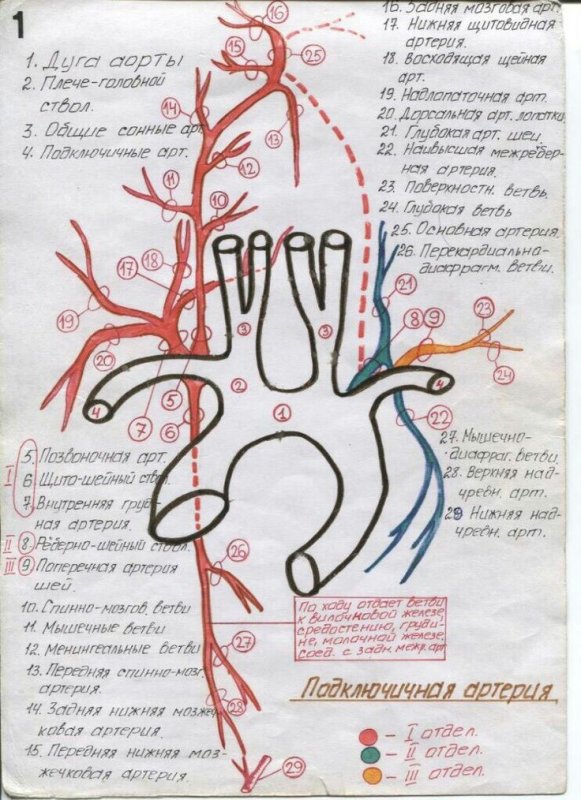 1
1. Дуга аорты
2. Плече-головной
ствол.
3. Общие сонные арт.
4. Подключичные арт.
16. Задняя мозговая арт.
17. Нижняя щитовидная
артерия.
18. Восходящая шейная
арт.
19. Надлопаточная арт.
20. Дорсальная арт. лопатки
21. Глубокая арт. шеи
22. Наивысшая межребер-
ная артерия.
23. Поверхностн. ветвь.
24. Глубокая ветвь
25. Основная артерия.
26. Перекардиально-
диафрагм. ветви.
16
15
25
14
13
12
11
10
18
17
19
20
21
8
9
23
24
22
3
3
2
1
4
4
7
5
6
I
5. Позвоночная арт.
6. Щито-шейный ствол.
7. Внутренняя груд-
ная артерия.
II 8. Рёберно-шейный ствол.
III 9. Поперечная артерия
шеи.
10. Спинно-мозгов. ветви
11. Мышечные ветви
12. Менингеальные ветви
13. Передняя спинно-мозг.
артерия.
14. Задняя нижняя мозжеч-
ковая артерия.
15. Передняя нижняя моз-
жечковая артерия.
27. Мышечно-
-диафраг. ветви.
28. Верхняя над-
чревн. арт.
29 Нижняя над-
чревн. арт.
26
27
28
29
По ходу отдает ветви
к вилочковой железе,
средостению, груди-
не, молочной железе,
соед. с задн. межр. арт
Подключичная артерия
- I отдел.
- II отдел.
- III отдел.